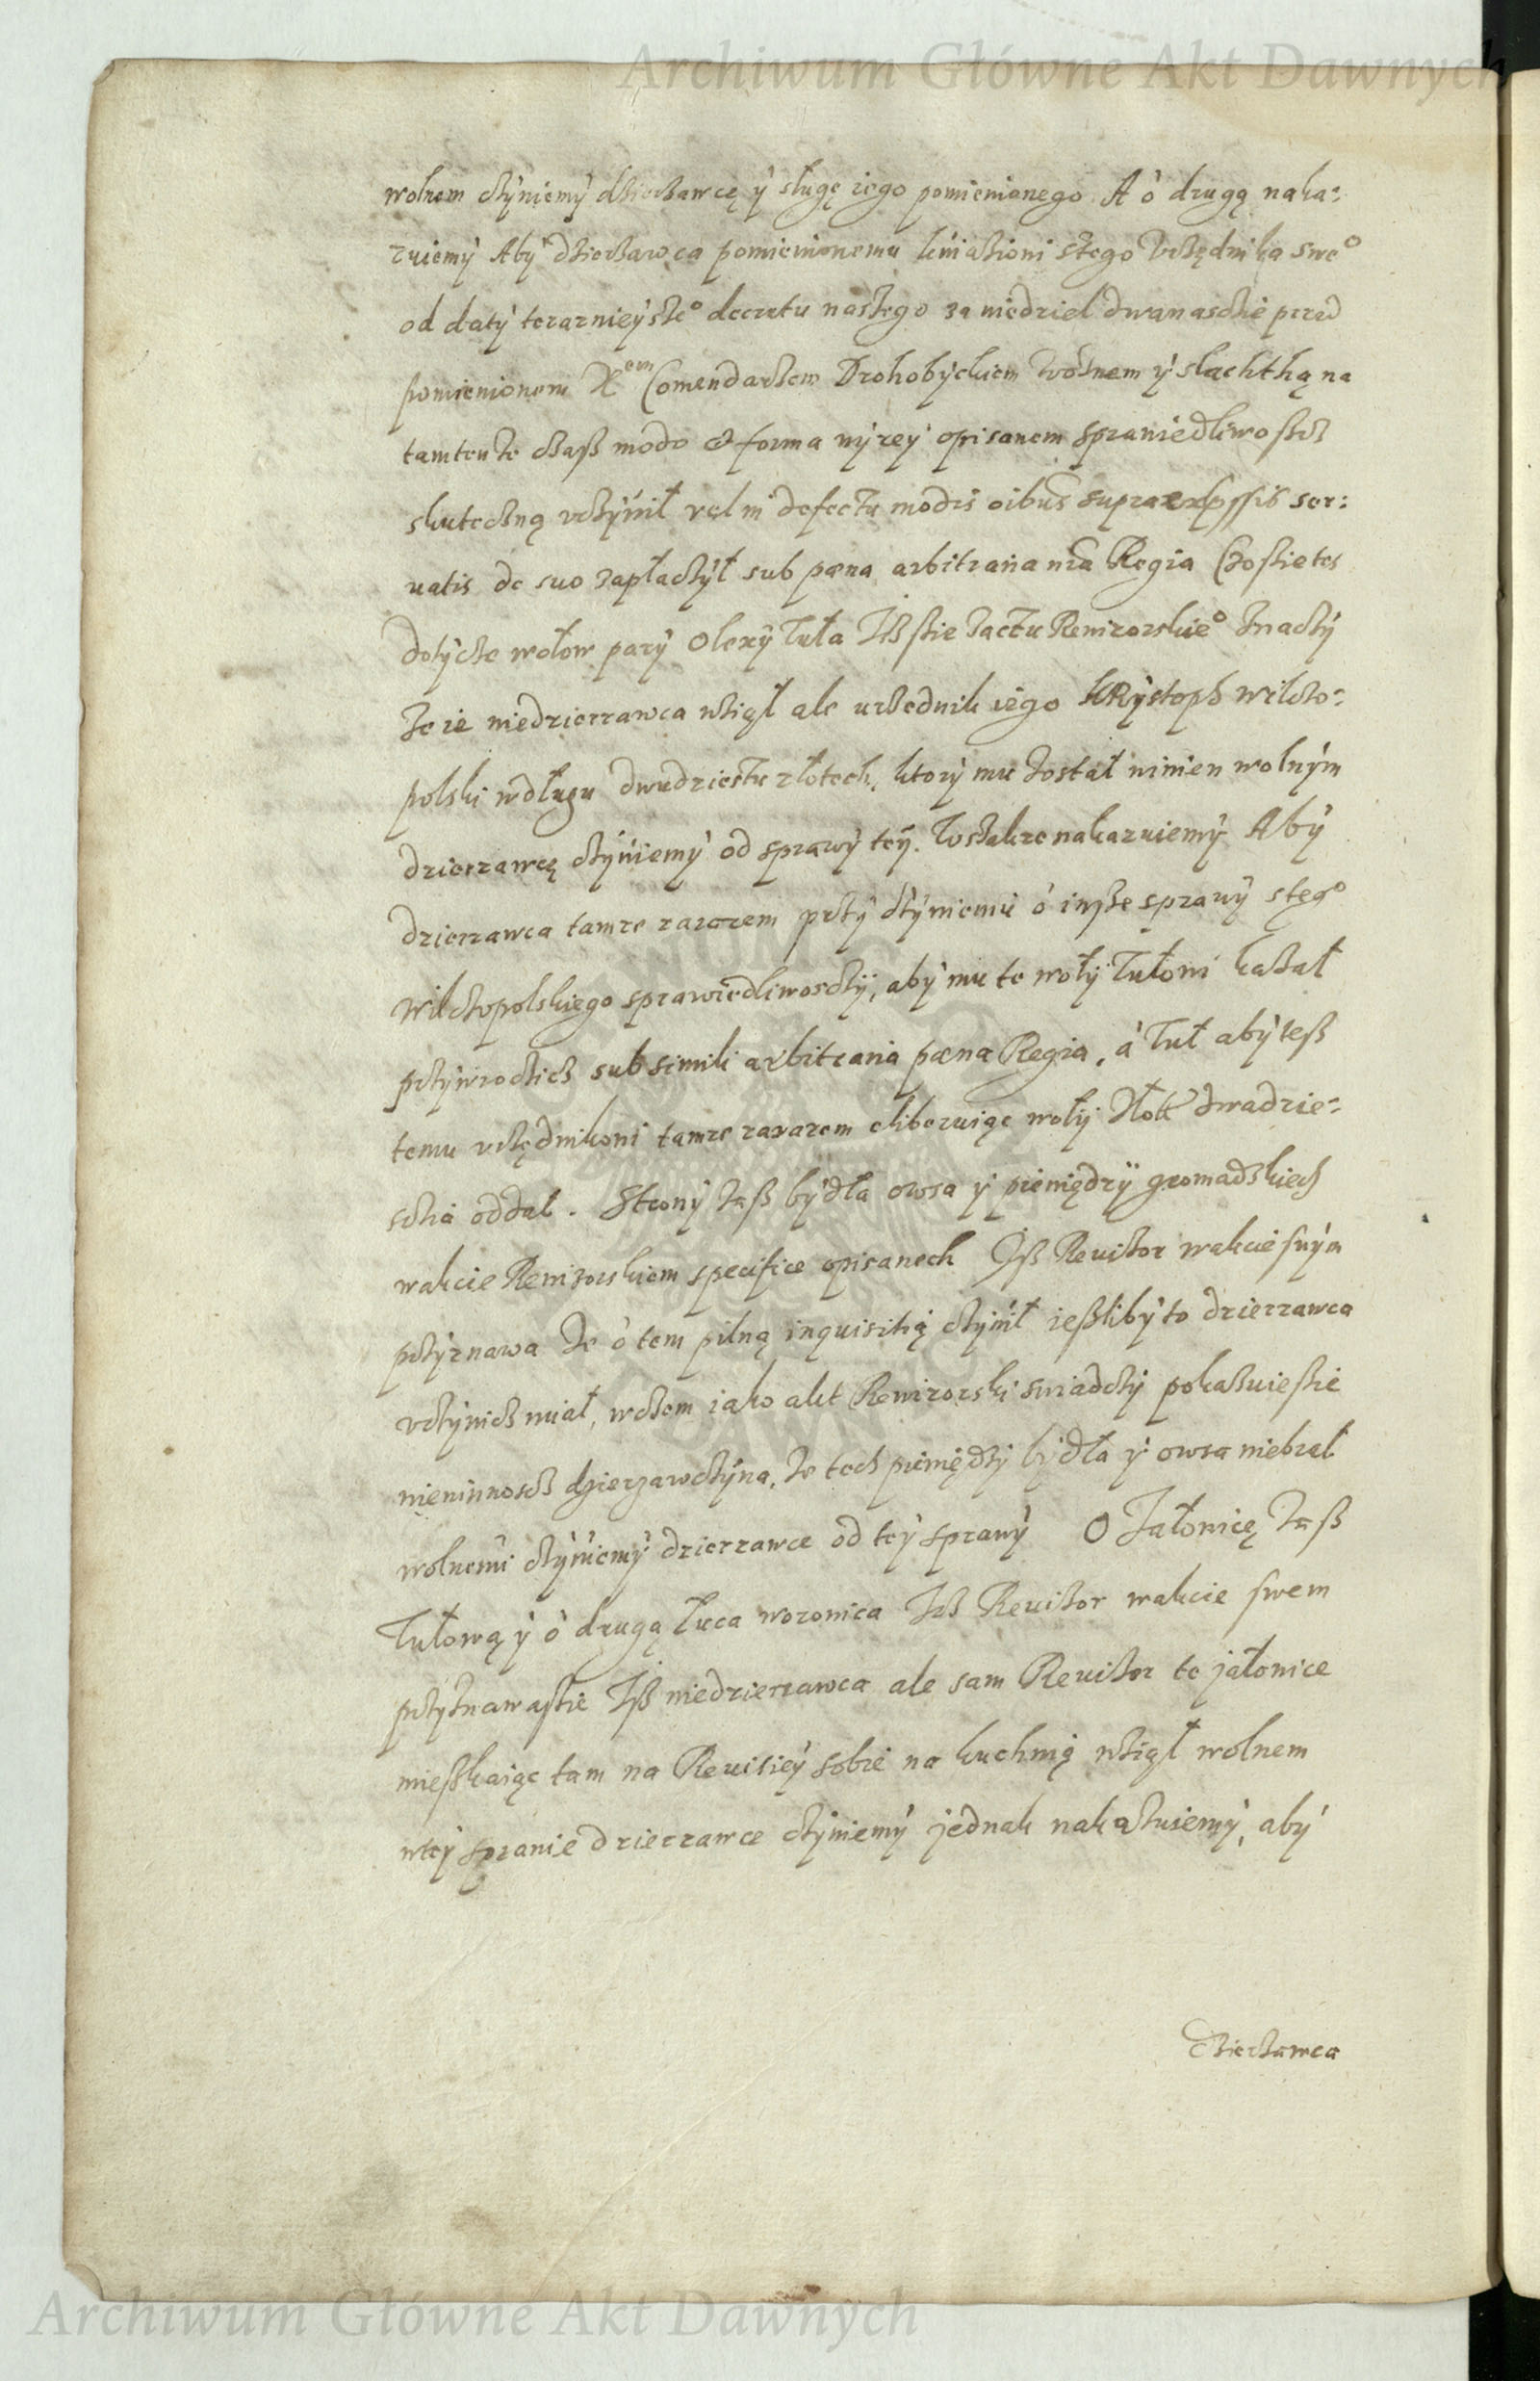 Archiwum Główne Akt Dawnych
wolnem cżÿniemÿ dżierżawcę ÿ sługę iego pomienionego. A o drugą naka:
zuiemÿ Abÿ dżierżawca pomienionemu kniażioni s tego Vrżędnika swe°
od datÿ terazniejsze° decretu naszego za niedziel dwanascżie przed
pomienionem X em Comendarżem Drohobÿckiem woznem ÿ slachthą na
tamten że cżaß modo et forma wÿzeÿ opisanem sprawiedliwoscż
skutecżną vcżÿnił vel in defectu modis oibus supraexpssis ser:
uatis de suo zapłacżÿł sub pœna arbitraria nra Regia Czo sie tcs
dotÿcże wołow parÿ Olexÿ Tuła Iżß sie z actu Rewizorskie° znacżÿ
że ie niedzierzawca wżiął ale urżednik iego KRÿstoph Wilcżo:
polski w długu dwudziestu złotech, ktorÿ mu został winien wolnÿm
dzierzawcę cżÿniemÿ od sprawÿ teÿ. Wszakze nakazuiemÿ Abÿ
dzierzawca tamze zarazem przÿ cżÿnieniu o insze sprawÿ s teg°
Wilcżopolskiego sprawiedliwoscżÿ, abÿ mu te wołÿ Tułowi każał
przÿwrocżicż sub simili arbitraria pœna Regia, à Tuł abÿ teß
temu vrżędnikowi tamze zarazem eliberuiąc wołÿ Złott dwadzie:
scżia oddał. Stronÿ zaß bÿdła owsa ÿ pieniędzÿ gromadskiech
w akcie Rewizorskiem specifice opisanech Iß Reuizor w akcie swÿm
przÿznawa że o tem pilną inquisitią cżÿnił iesslibÿ to dzierzawca
vcżÿnicż miał, w cżem iako akt Rewizorski swiadcżÿ pokazuie sie
niewinnoscż dzierzawcżÿna, że tech pieniędżÿ bÿdła ÿ owsa niebrał
wolnemi cżÿniemÿ dzierzawce od teÿ sprawÿ O Jałowicę zaß
Tułową ÿ o drugą Łuca Woronica Iżß Reuizor w akcie swem
przÿznawa sie Iß niedzierzawca ale sam Reuizor te jałowice
mießkaiąc tam na Reuisieÿ sobie na kuchnią wżiął wolnem
w teÿ sprawie dzierzawce cżÿniemÿ jednak nakazuiemÿ, abÿ
dżierżawca
Archiwum Główne Akt Dawnych